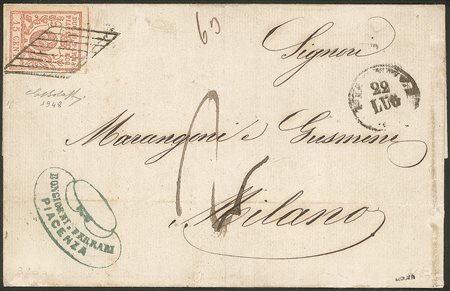 15 CENT.
63
Signori
22
LUG
1948
Marangoni e Gusmani
Milano
BONGIORNI E FERRARI
PIACENZA